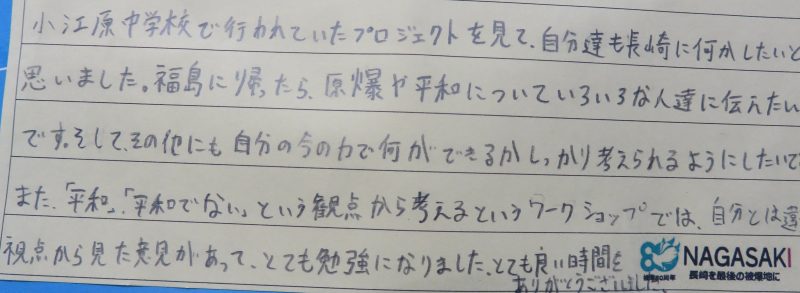 小江原中学校で行われていたプロジェクトを見て、自分達も長崎に何かしたいと
思いました。福島に帰ったら、原爆や平和についていろいろな人達に伝えたい
です。そして、その他にも自分の今の力で何ができるかしっかり考えられるようにしたいで
また、「平和」、「平和でない」という観点から考えるというワークショップでは、自分とは違
視点から見た意見があって、とても勉強になりました。とても良い時間を
ありがとうございました。
NAGASAKI
長崎を最後の被爆地に